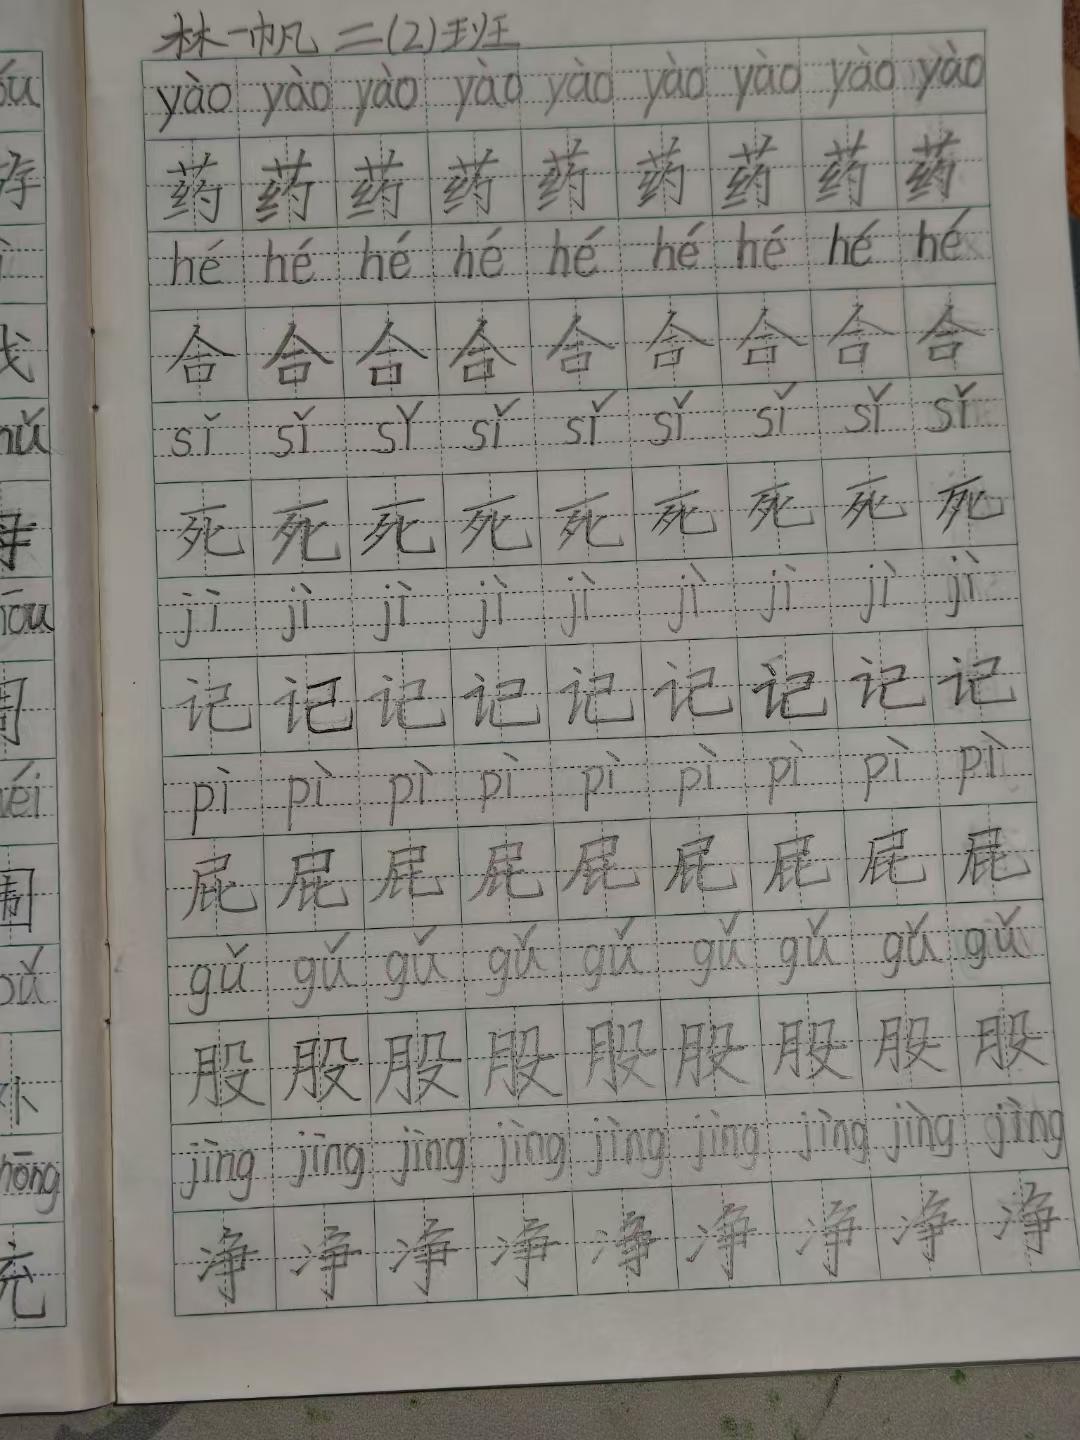 林一帆 二(2)班
yào yào yào yào yào yào yào yào yào
药 药 药 药 药 药 药 药 药
hé hé hé hé hé hé hé hé hé
合 合 合 合 合 合 合 合 合
sǐ sǐ sǐ sǐ sǐ sǐ sǐ sǐ sǐ
死 死 死 死 死 死 死 死 死
jì jì jì jì jì jì jì jì jì
记 记 记 记 记 记 记 记 记
pì pì pì pì pì pì pì pì pì
屁 屁 屁 屁 屁 屁 屁 屁 屁
gǔ gǔ gǔ gǔ gǔ gǔ gǔ gǔ gǔ
股 股 股 股 股 股 股 股 股
jìng jìng jìng jìng jìng jìng jìng jìng jìng
净 净 净 净 净 净 净 净 净